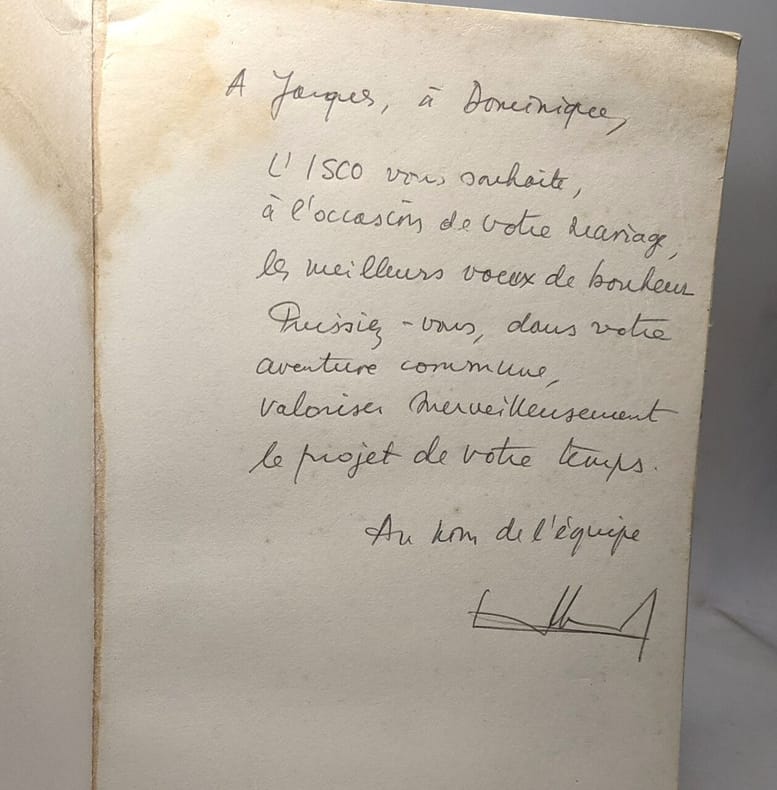 A Jacques, à Dominique,
L'ISCO vous souhaite,
à l'occasion de votre mariage,
les meilleurs voeux de bonheur
Puissiez-vous, dans votre
aventure commune,
valoriser merveilleusement
le projet de votre temps.
Au nom de l'équipe